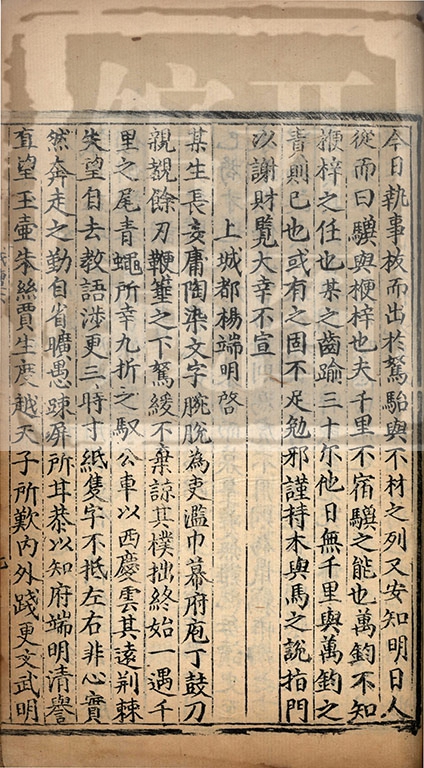 今日執事核而出於駑駘與不材之列又安知明日人
從而曰驥與梗梓也夫千里不宿驥之能也萬鈞不知
楩梓之任也某之齒踰三十尓他日無千里與萬鈞之
責則已也或有之固不足勉邪謹持木與馬之說指門
以謝財覽大幸不宣
上城都楊端明啓
某生長妄庸陶染文字腕脫為吏濫巾幕府庖丁鼓刀
親覩餘刃鞭箠之下駑緩不棄諒其樸拙終始一遇千
里之尾青蠅所幸九折之馭公車以西慶雲其遠荆棘
失望自去教語涉更三時寸紙隻字不抵左右非心實
然奔走之勤自省曠愚踈屏所甘恭以知府端明清譽
直望玉壷朱絲賈生度越天子所歎内外踐更文武明